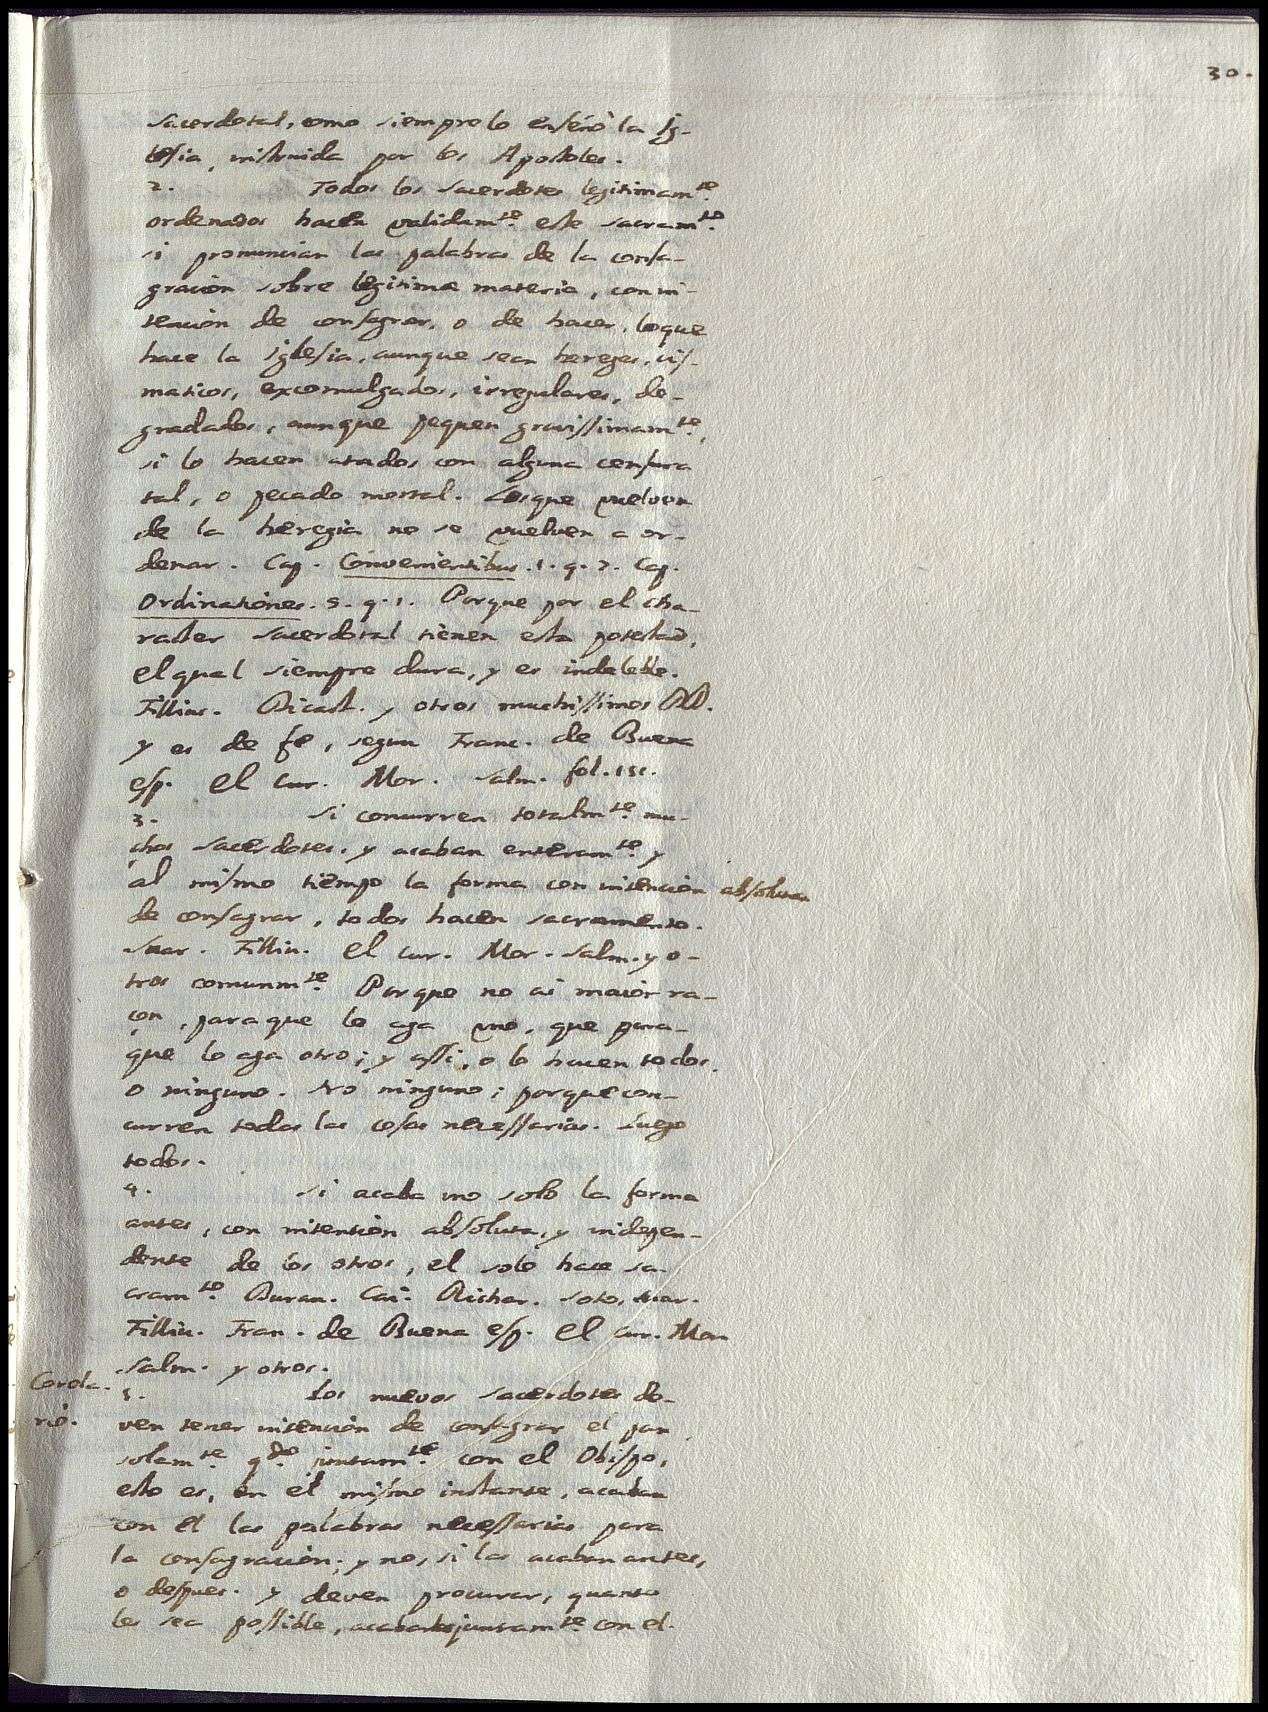 30.
sacerdotal, como siempre lo enseño la Ig-
lesia, instruida por los Apostoles.
2. Todos los sacerdotes legitimam.te
ordenados hacen validam.te este sacram.to
si pronuncian las palabras de la consa-
gracion sobre legitima materia, con in-
tencion de consagrar, o de hacer, loque
hace la Iglesia, aunque sean hereges, cis-
maticos, excomulgados, irregulares, de-
gradados, aunque pequen gravissimam.te,
si lo hacen atados con alguna censura
tal, o pecado mortal. Losque vuelven
de la heregia no se vuelven a or-
denar. Cap. Convenientibus. 1. q. 7. Cap.
Ordinationes. 9. q. 1. Porque por el cha-
racter sacerdotal tienen esta potestad,
el qual siempre dura, y es indeleble.
Filliuc. Dicast. y otros muchissimos DD.
y es de fe, segun Franc. de Buena
esp. el Cur. Mor. Salm. fol. 151.
3. Si concurren totalm.te mu-
chos sacerdotes, y acaban enteram.te y
al mismo tiempo la forma con intencion absoluta
de consagrar, todos hacen sacramento.
Suar. Filliu. el Cur. Mor. Salm. y o-
tros comunm.te Porque no ai maior ra-
çon, paraque lo aga uno, que para-
que lo aga otro; y assi, o lo hacen todos,
o ninguno. No ninguno; porque con-
curren todas las cosas necessarias. Luego
todos.
4. Si acaba uno solo la forma
antes, con intention absoluta, y indepen-
dente de los otros, el solo hace sa-
cram.to Duran. Cai. Richar. Soto, Suar.
Filliu. Fran. de Buena esp. el Cur. Mor.
Salm. y otros.
Corola-
rio.
5. Los nuevos sacerdotes de-
ven tener intencion de consagrar el pan
solam.te q.do juntam.te con el Obispo,
esto es, en el mismo instante, acaban
con el las palabras necessarias para
la consagracion; y no, si las acaban antes,
o despues. y deven procurar, quanto
les sea possible, acabarlas juntam.te con el.